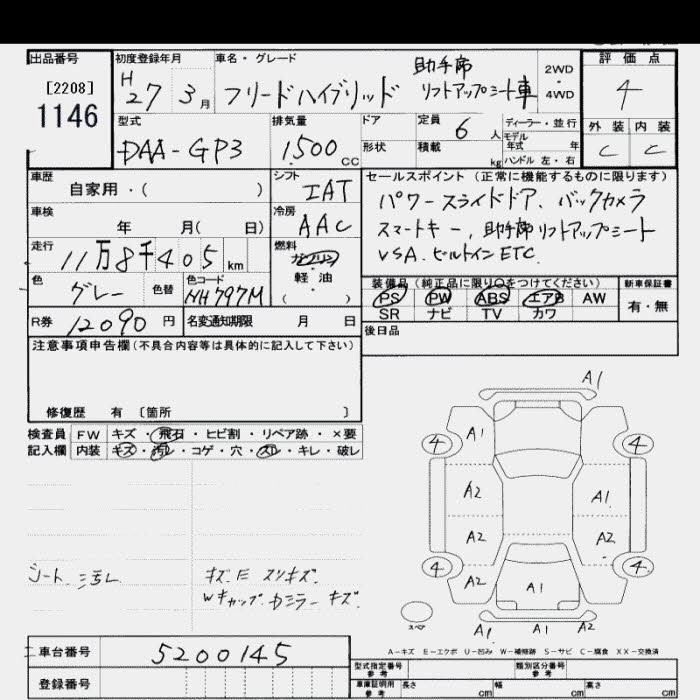 出品番号 初度登録年月 車名・グレード 評価点
[2208] H27 3月 フリードハイブリッド 助手席 2WD
1146 リフトアップシート車 4WD 4
型式 排気量 ドア 定員 6人 ディーラー・並行 外装 内装
DAA-GP3 1500CC 形状 積載 kg モデル年式 年 C C
ハンドル 左・右
車歴 シフト セールスポイント (正常に機能するものに限ります)
自家用・( ) IAT パワースライドドア、バックカメラ
車検 冷房 スマートキー、助手席リフトアップシート
年 月( 日) AAC VSA.ビルトインETC.
走行 11万8千405km 燃料 ガソリン
軽・油
( )
色 グレー 色替 色コード NH797M
装備品 (純正品に限り○をつけてください) 新車保証書
PS PW ABS エアB AW 有・無
SR ナビ TV カワ
R券 12090円 名変通知期限 月 日 後日品
注意事項申告欄 (不具合内容等は具体的に記入して下さい)
修復歴 有 〔箇所 〕
検査員 FW キズ・飛石・ヒビ割・リペア跡・×要
記入欄 内装 キズ・汚レ・コゲ・穴・スレ・キレ・破レ
A1
4 A1 4
A2 A1
A2 A2
4 A2 A1 4
スペア A1 A1 A2
シート.シミ汚レ キズ.E スリキズ.
Wキャップ.Dミラー キズ.
A-キズ E-エクボ U-凹み W-補修跡 S-サビ C-腐食 XX-交換済
車台番号 5200145
型式指定番号 参考 類別区分番号 参考
登録番号 車庫証明用 参考 長さ cm 幅 cm 高さ cm